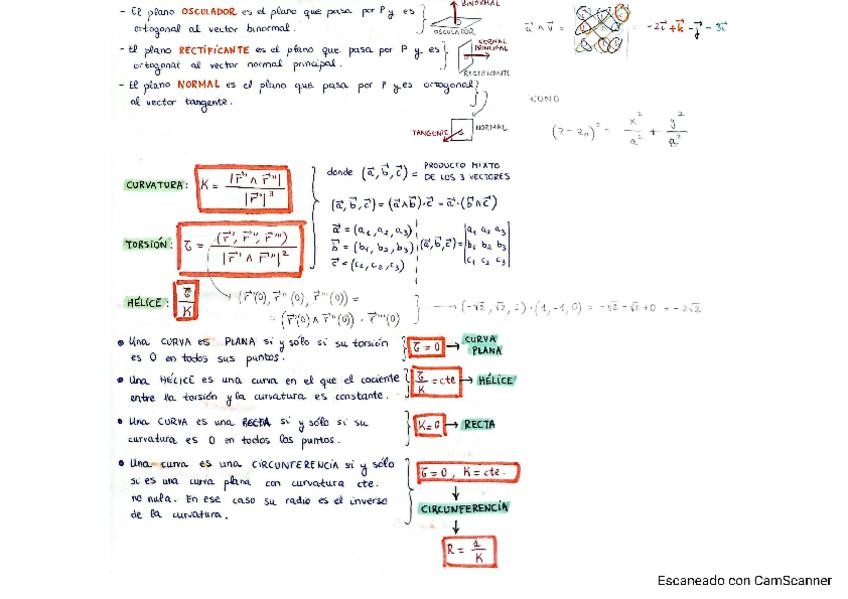 - El plano OSCULADOR es el plano que pasa por P y es
ortogonal al vector binormal.
BINORMAL
OSCULADOR
- El plano RECTIFICANTE es el plano que pasa por P y es
ortogonal al vector normal principal.
NORMAL
PRINCIPAL
RECTIFICANTE
- El plano NORMAL es el plano que pasa por P y es ortogonal
al vector tangente.
TANGENTE
NORMAL
= -2i+k-j-3i
CONO
(z-z₀)² = x²/a² + y²/a²
CURVATURA: K = |r⃗' ∧ r⃗''| / |r⃗'|³
donde (a⃗, b⃗, c⃗) = PRODUCTO MIXTO
DE LOS 3 VECTORES
(a⃗, b⃗, c⃗) = (a⃗∧b⃗)·c⃗ = a⃗·(b⃗∧c⃗)
TORSIÓN: τ = (r⃗', r⃗'', r⃗''') / |r⃗' ∧ r⃗''|²
a⃗ = (a₁, a₂, a₃)
b⃗ = (b₁, b₂, b₃)
c⃗ = (c₁, c₂, c₃)
(a⃗, b⃗, c⃗) = |a₁ a₂ a₃
b₁ b₂ b₃
c₁ c₂ c₃|
HÉLICE: τ/K
(r⃗'(0), r⃗''(0), r⃗'''(0)) =
= (r⃗'(0) ∧ r⃗''(0)) · r⃗'''(0)
(-√2, √2, 2)·(1, -1, 0) = -√2 - √2 + 0 = -2√2
• Una CURVA es PLANA si y sólo si su torsión
es 0 en todos sus puntos.
τ = 0 → CURVA
PLANA
• Una HÉLICE es una curva en el que el cociente
entre la torsión y la curvatura es constante.
τ/K = cte → HÉLICE
• Una CURVA es una RECTA si y sólo si su
curvatura es 0 en todos los puntos.
K=0 → RECTA
• Una curva es una CIRCUNFERENCIA si y sólo
si es una curva plana con curvatura cte.
no nula. En ese caso su radio es el inverso
de la curvatura.
τ=0, K=cte.
CIRCUNFERENCIA
R = 1/K
Escaneado con CamScanner